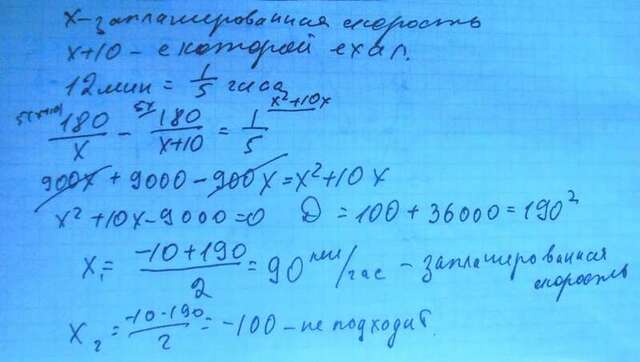 x-запланированная скорость
x+10 - с которой ехал.
12 мин = 1/5 часа
5(x+10) 180/x - 5x 180/(x+10) = 1/5 x²+10x
900x + 9000 - 900x = x²+10x
x²+10x-9000=0 D = 100 + 36000 = 190²
x₁ = (-10+190)/2 = 90 км/час - запланированная скорость
x₂ = (-10-190)/2 = -100 - не подходит.